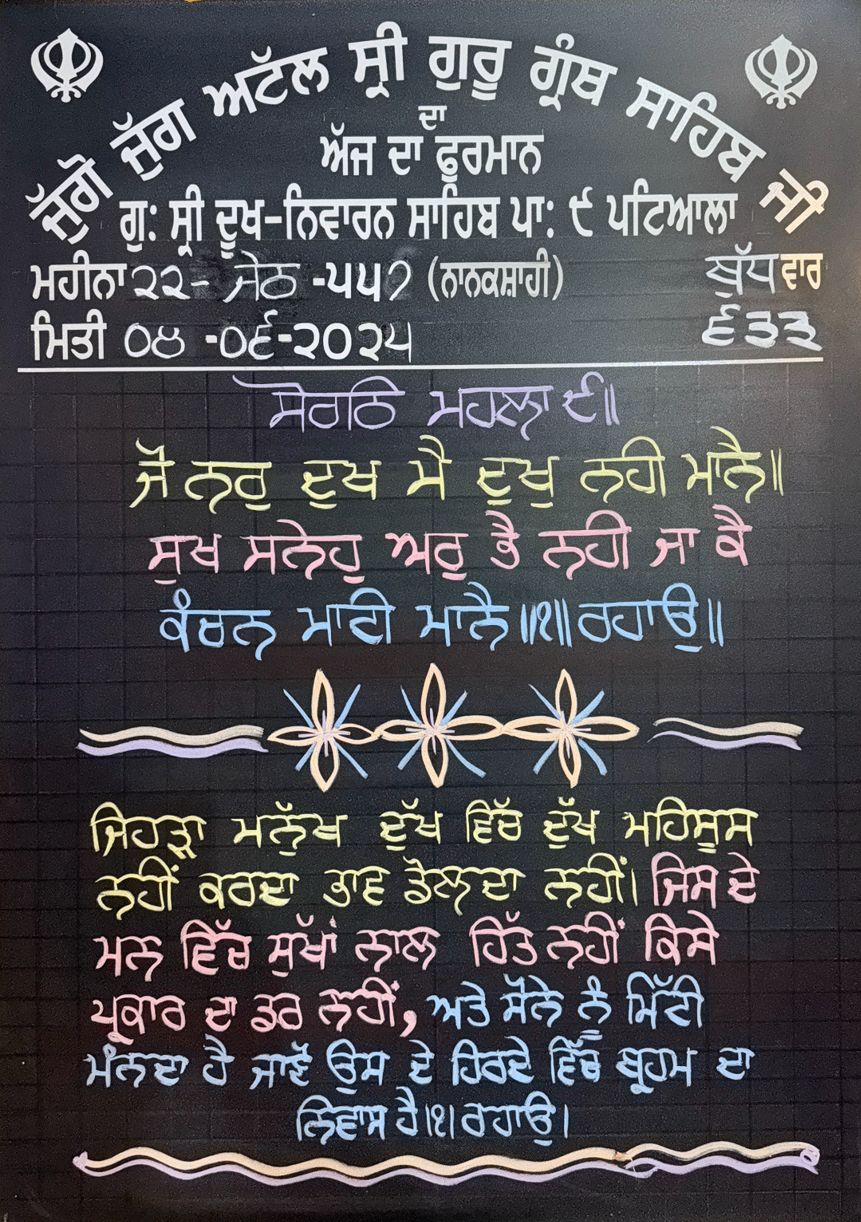 ਜੁੱਗੋ ਜੁੱਗ ਅਟੱਲ ਸ੍ਰੀ ਗੁਰੂ ਗ੍ਰੰਥ ਸਾਹਿਬ ਜੀ
ਦਾ
ਅੱਜ ਦਾ ਫੂਰਮਾਨ
ਗੁ: ਸ੍ਰੀ ਦੂਖ-ਨਿਵਾਰਨ ਸਾਹਿਬ ਪਾ: ੯ ਪਟਿਆਲਾ
ਮਹੀਨਾ ੨੨- ਜੇਠ -੫੫੭ (ਨਾਨਕਸ਼ਾਹੀ) ਬੁੱਧਵਾਰ
ਮਿਤੀ ੦੪ -੦੬-੨੦੨੫ ੬੩੩
ਸੋਰਠਿ ਮਹਲਾ ੯॥
ਜੋ ਨਰੁ ਦੁਖ ਮੈ ਦੁਖੁ ਨਹੀ ਮਾਨੈ॥
ਸੁਖ ਸਨੇਹੁ ਅਰੁ ਭੈ ਨਹੀ ਜਾ ਕੈ
ਕੰਚਨ ਮਾਟੀ ਮਾਨੈ॥੧॥ਰਹਾਉ॥
ਜਿਹੜਾ ਮਨੁੱਖ ਦੁੱਖ ਵਿੱਚ ਦੁੱਖ ਮਹਿਸੂਸ
ਨਹੀਂ ਕਰਦਾ ਭਾਵ ਡੋਲਦਾ ਨਹੀਂ। ਜਿਸ ਦੇ
ਮਨ ਵਿੱਚ ਸੁੱਖਾਂ ਨਾਲ ਹਿੱਤ ਨਹੀਂ ਕਿਸੇ
ਪ੍ਰਕਾਰ ਦਾ ਡਰ ਨਹੀਂ, ਅਤੇ ਸੋਨੇ ਨੂੰ ਮਿੱਟੀ
ਮੰਨਦਾ ਹੈ ਜਾਣੋ ਉਸ ਦੇ ਹਿਰਦੇ ਵਿੱਚ ਬ੍ਰਹਮ ਦਾ
ਨਿਵਾਸ ਹੈ।੧।ਰਹਾਉ।